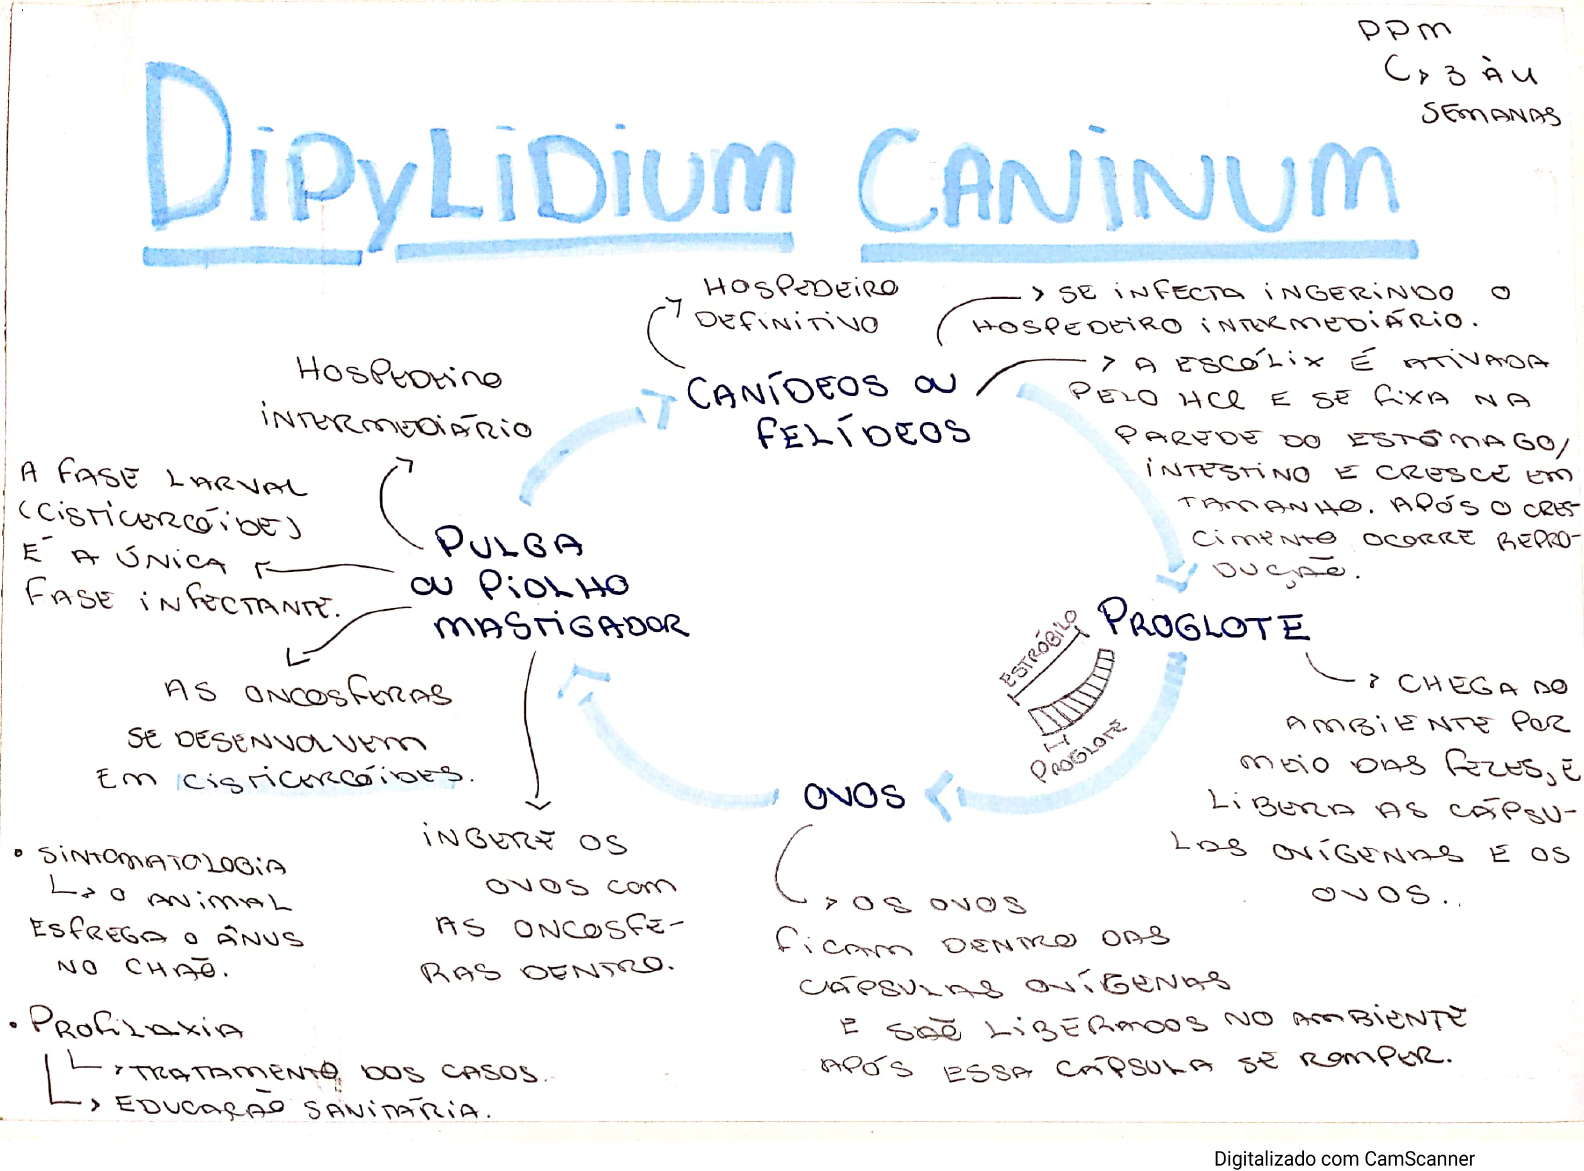 PPM
↳ 3 À 4
SEMANAS
DIPYLIDIUM CANINUM
HOSPEDEIRO
DEFINITIVO
> SE INFECTA INGERINDO O
HOSPEDEIRO INTERMEDIÁRIO.
CANÍDEOS OU
FELÍDEOS
> A ESCÓLIX É ATIVADA
PELO HCl E SE FIXA NA
PAREDE DO ESTÔMAGO/
INTESTINO E CRESCE EM
TAMANHO. APÓS O CRES-
CIMENTO OCORRE REPRO-
DUÇÃO.
HOSPEDEIRO
INTERMEDIÁRIO
A FASE LARVAL
(CISTICERCÓIDE)
É A ÚNICA
FASE INFECTANTE.
PULGA
OU PIOLHO
MASTIGADOR
AS ONCOSFERAS
SE DESENVOLVEM
EM CISTICERCÓIDES.
INGERE OS
OVOS COM
AS ONCOSFE-
RAS DENTRO.
PROGLOTE
ESTRÓBILO
PROGLOTE
> CHEGA AO
AMBIENTE POR
MEIO DAS FEZES, E
LIBERA AS CÁPSU-
LAS OVÍGENAS E OS
OVOS..
OVOS
> OS OVOS
FICAM DENTRO DAS
CÁPSULAS OVÍGENAS
E SÃO LIBERADOS NO AMBIENTE
APÓS ESSA CÁPSULA SE ROMPER.
• SINTOMATOLOGIA
↳ O ANIMAL
ESFREGA O ÂNUS
NO CHÃO.
• PROFILAXIA
↳ TRATAMENTO DOS CASOS.
↳ EDUCAÇÃO SANITÁRIA.
Digitalizado com CamScanner